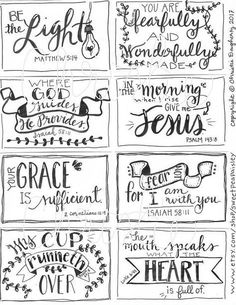 BE
the
Light
MATTHEW 5:14
YOU ARE
fearfully
AND
Wonderfully
MADE
WHERE
GOD
guides
He Provides
Isaiah 58:11
IN the morning
when I rise GIVE me
Jesus
PSALM 143:8
YOUR
GRACE
is
sufficient.
2 corinthians
fear not
for I am
with you
ISAIAH
His CUP
runneth
OVER
the
mouth speaks
WHAT THE
HEART
is full of.
copyright © 2017
www.etsy.com/shop/SweetPeasPaisley